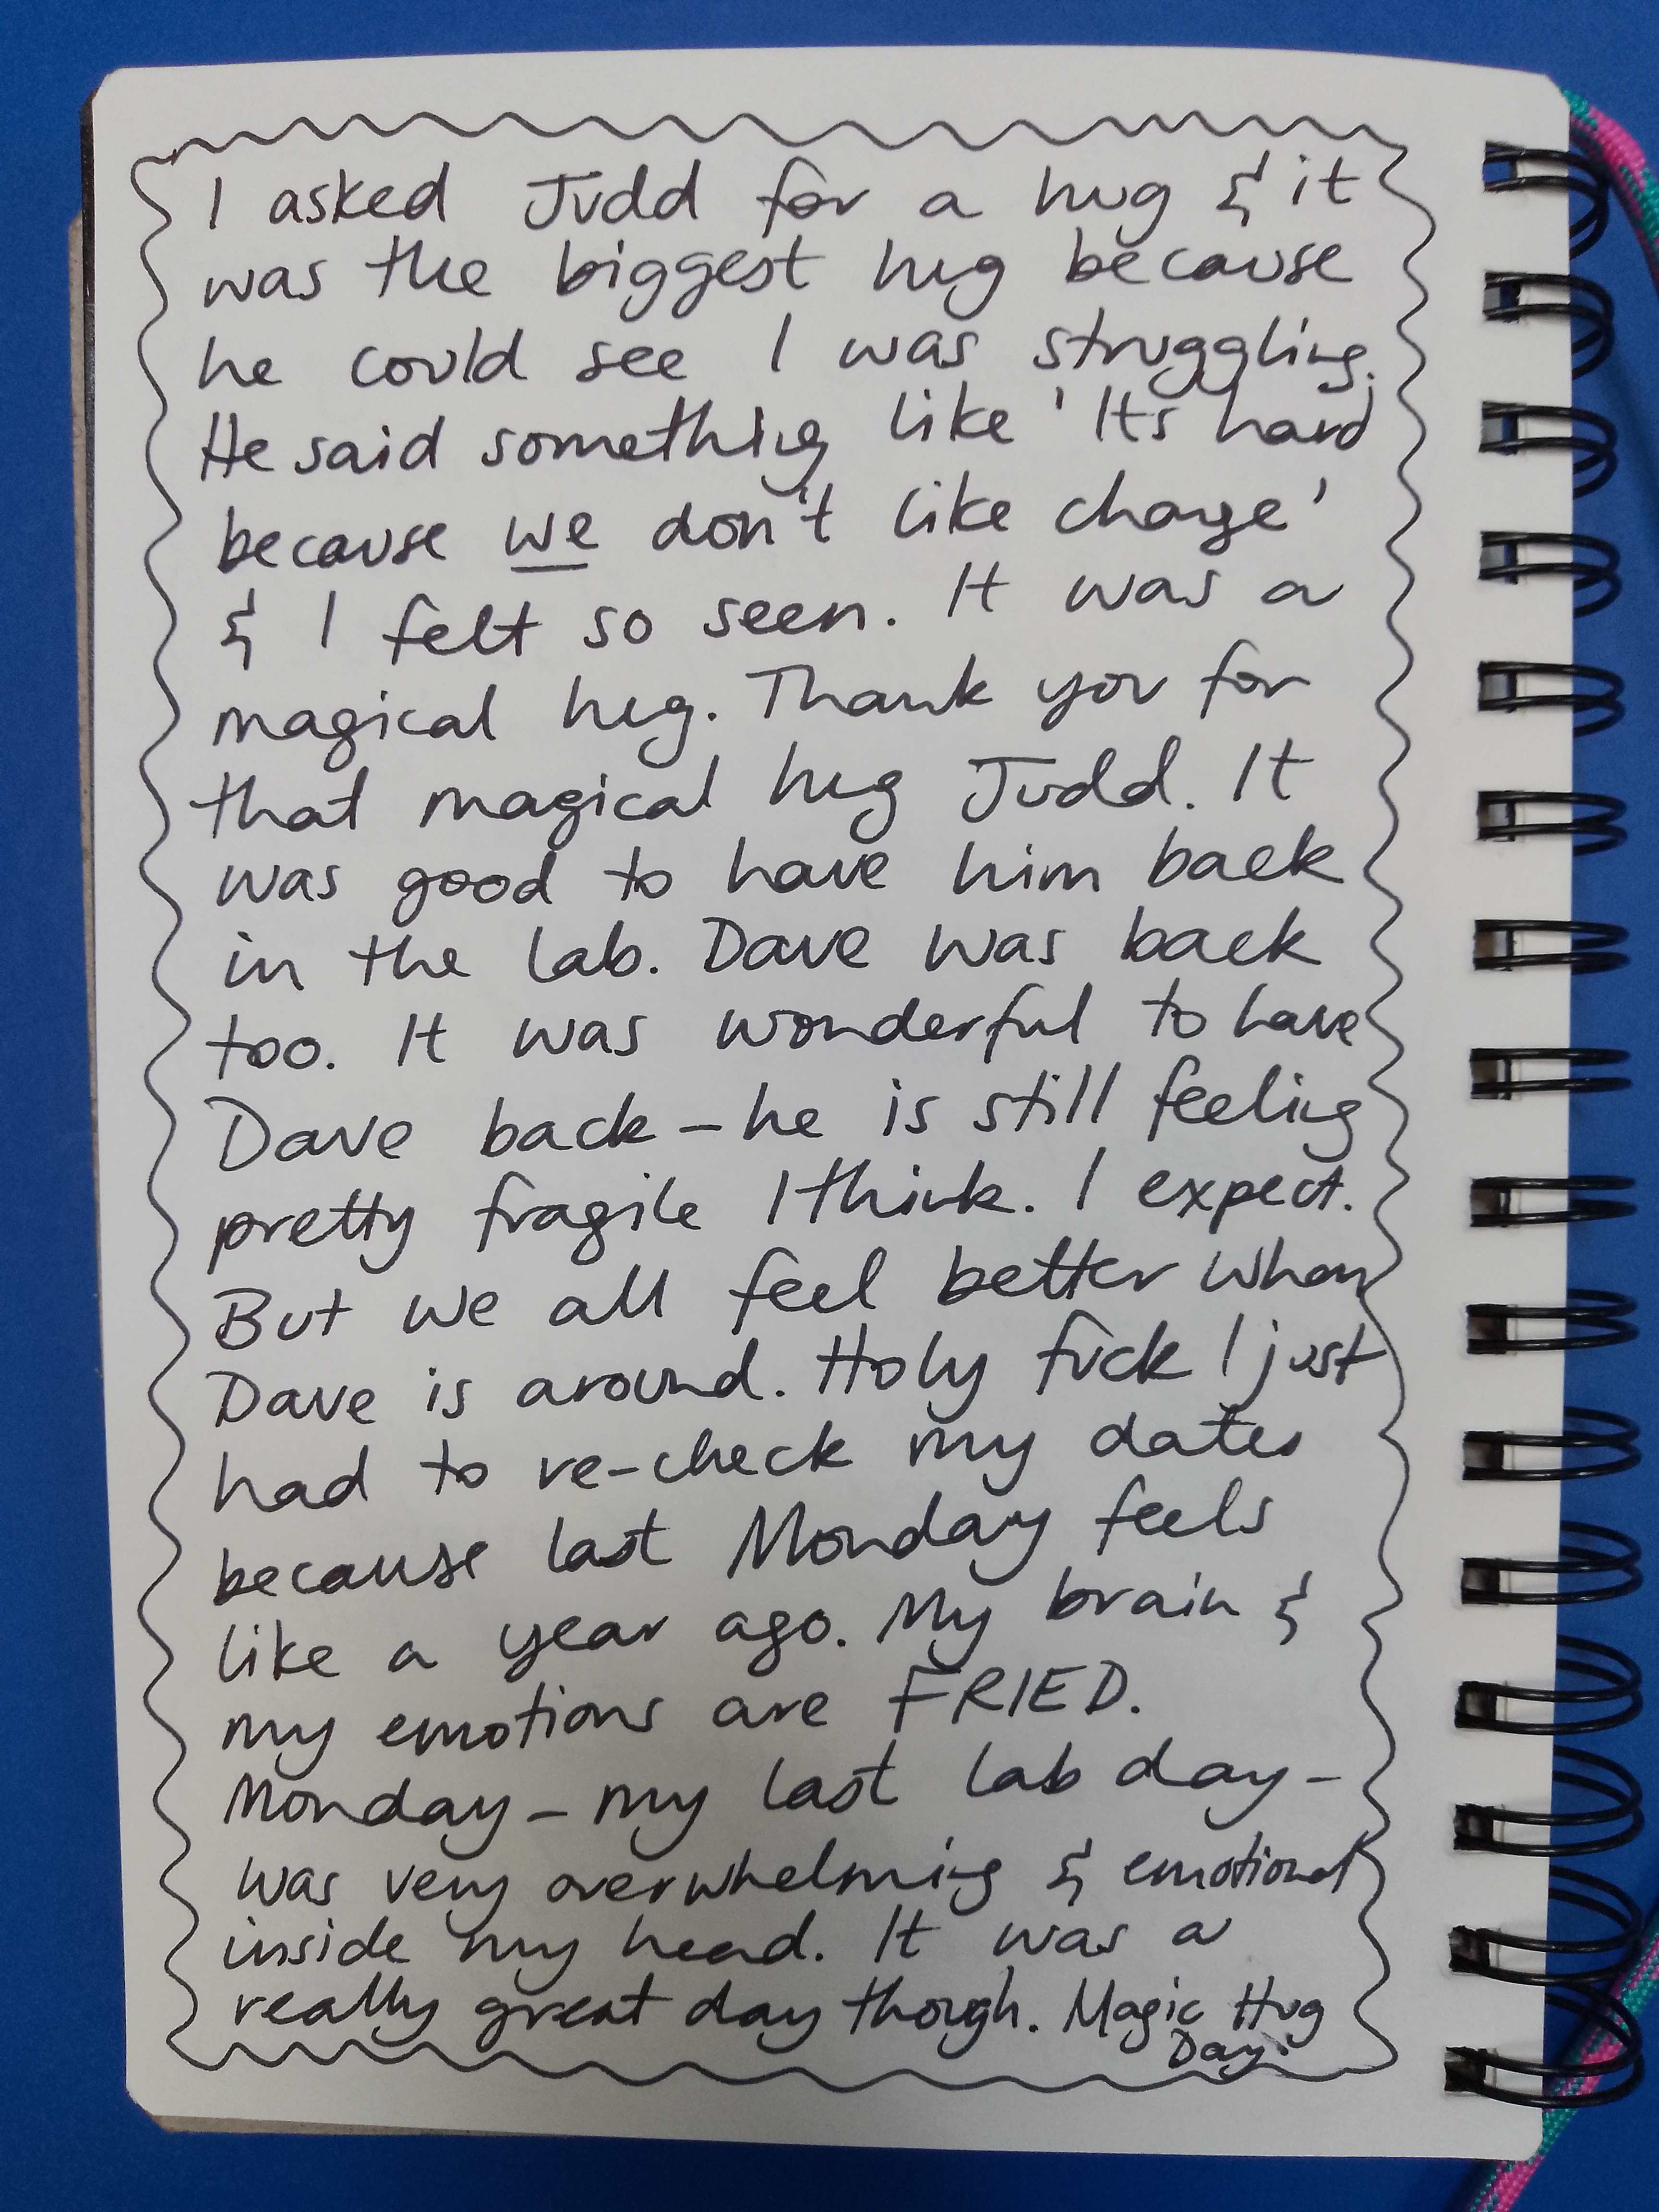 I asked Judd for a hug & it
was the biggest hug because
he could see I was struggling.
He said something like 'Its hard
because we don't like change'
& I felt so seen. It was a
magical hug. Thank you for
that magical hug Judd. It
was good to have him back
in the lab. Dave was back
too. It was wonderful to have
Dave back – he is still feeling
pretty fragile I think. I expect.
But we all feel better when
Dave is around. Holy fuck I just
had to re-check my dates
because last Monday feels
like a year ago. My brain &
my emotions are FRIED.
Monday – my last lab day –
was very overwhelming & emotional
inside my head. It was a
really great day though. Magic Hug
Day.